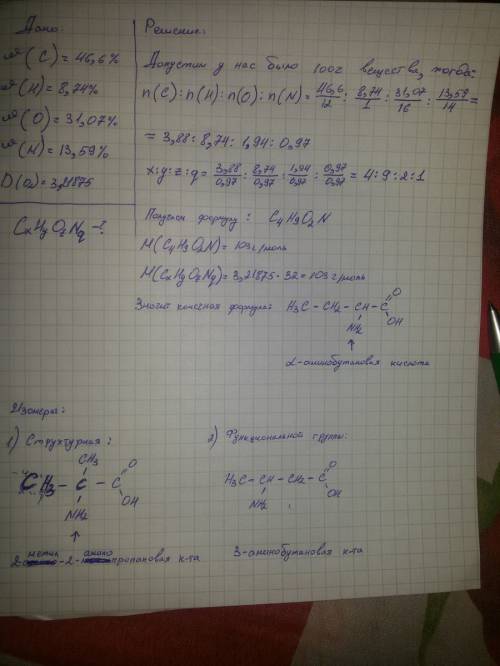 Дано:
ω(C) = 46,6%
ω(H) = 8,74%
ω(O) = 31,07%
ω(N) = 13,59%
D(O₂) = 3,21875
CxHyOzNq - ?
Решение:
Допустим у нас было 100г вещества, тогда:
n(C) : n(H) : n(O) : n(N) = 46,6/12 : 8,74/1 : 31,07/16 : 13,59/14 =
= 3,88 : 8,74 : 1,94 : 0,97
x:y:z:q = 3,88/0,97 : 8,74/0,97 : 1,94/0,97 : 0,97/0,97 = 4:9:2:1
Получаем формулу: C₄H₉O₂N
M(C₄H₉O₂N) = 103 г/моль
M(CxHyOzNq) = 3,21875 · 32 = 103 г/моль
Значит конечная формула: H₃C – CH₂ – CH – C
O
OH
NH₂
↑
α-аминобутановая кислота
Изомеры:
1) Структурная:
CH₃
CH₃ – C – C
O
OH
NH₂
↑
2-амино-2-метилпропановая к-та
2) Функциональной группы:
H₃C – CH – CH₂ – C
O
OH
NH₂
3-аминобутановая к-та